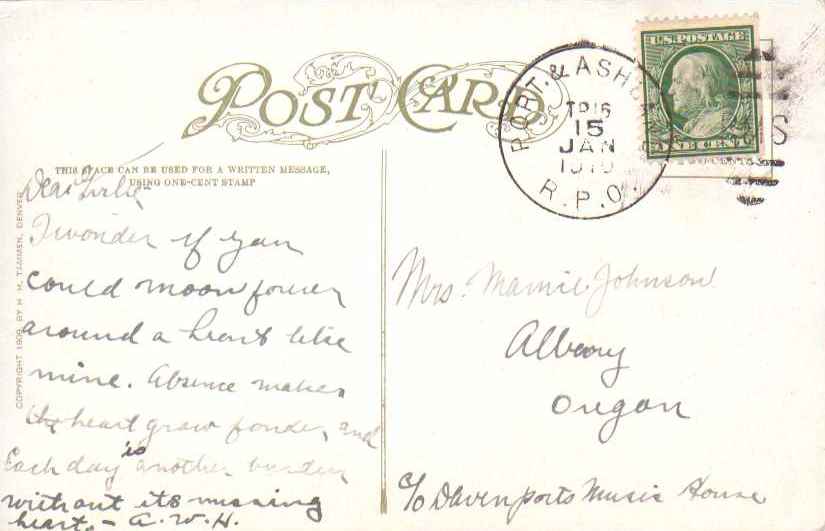 POST CARD
THIS SPACE CAN BE USED FOR A WRITTEN MESSAGE,
USING ONE-CENT STAMP
COPYRIGHT 1909 BY H. H. TAMMEN, DENVER
PORT. & ASH
TR 16
15
JAN
R.P.O.
U.S. POSTAGE
ONE CENT
TWO CENTS
S
Dear
I wonder if you
could moon forever
around a heart like
mine. Absence makes
the heart grow fonder, and
Each day is another burden
without its missing
heart. - A.W.H.
Mrs. Mamie Johnson
Albany
Oregon
c/o Davenports Music House